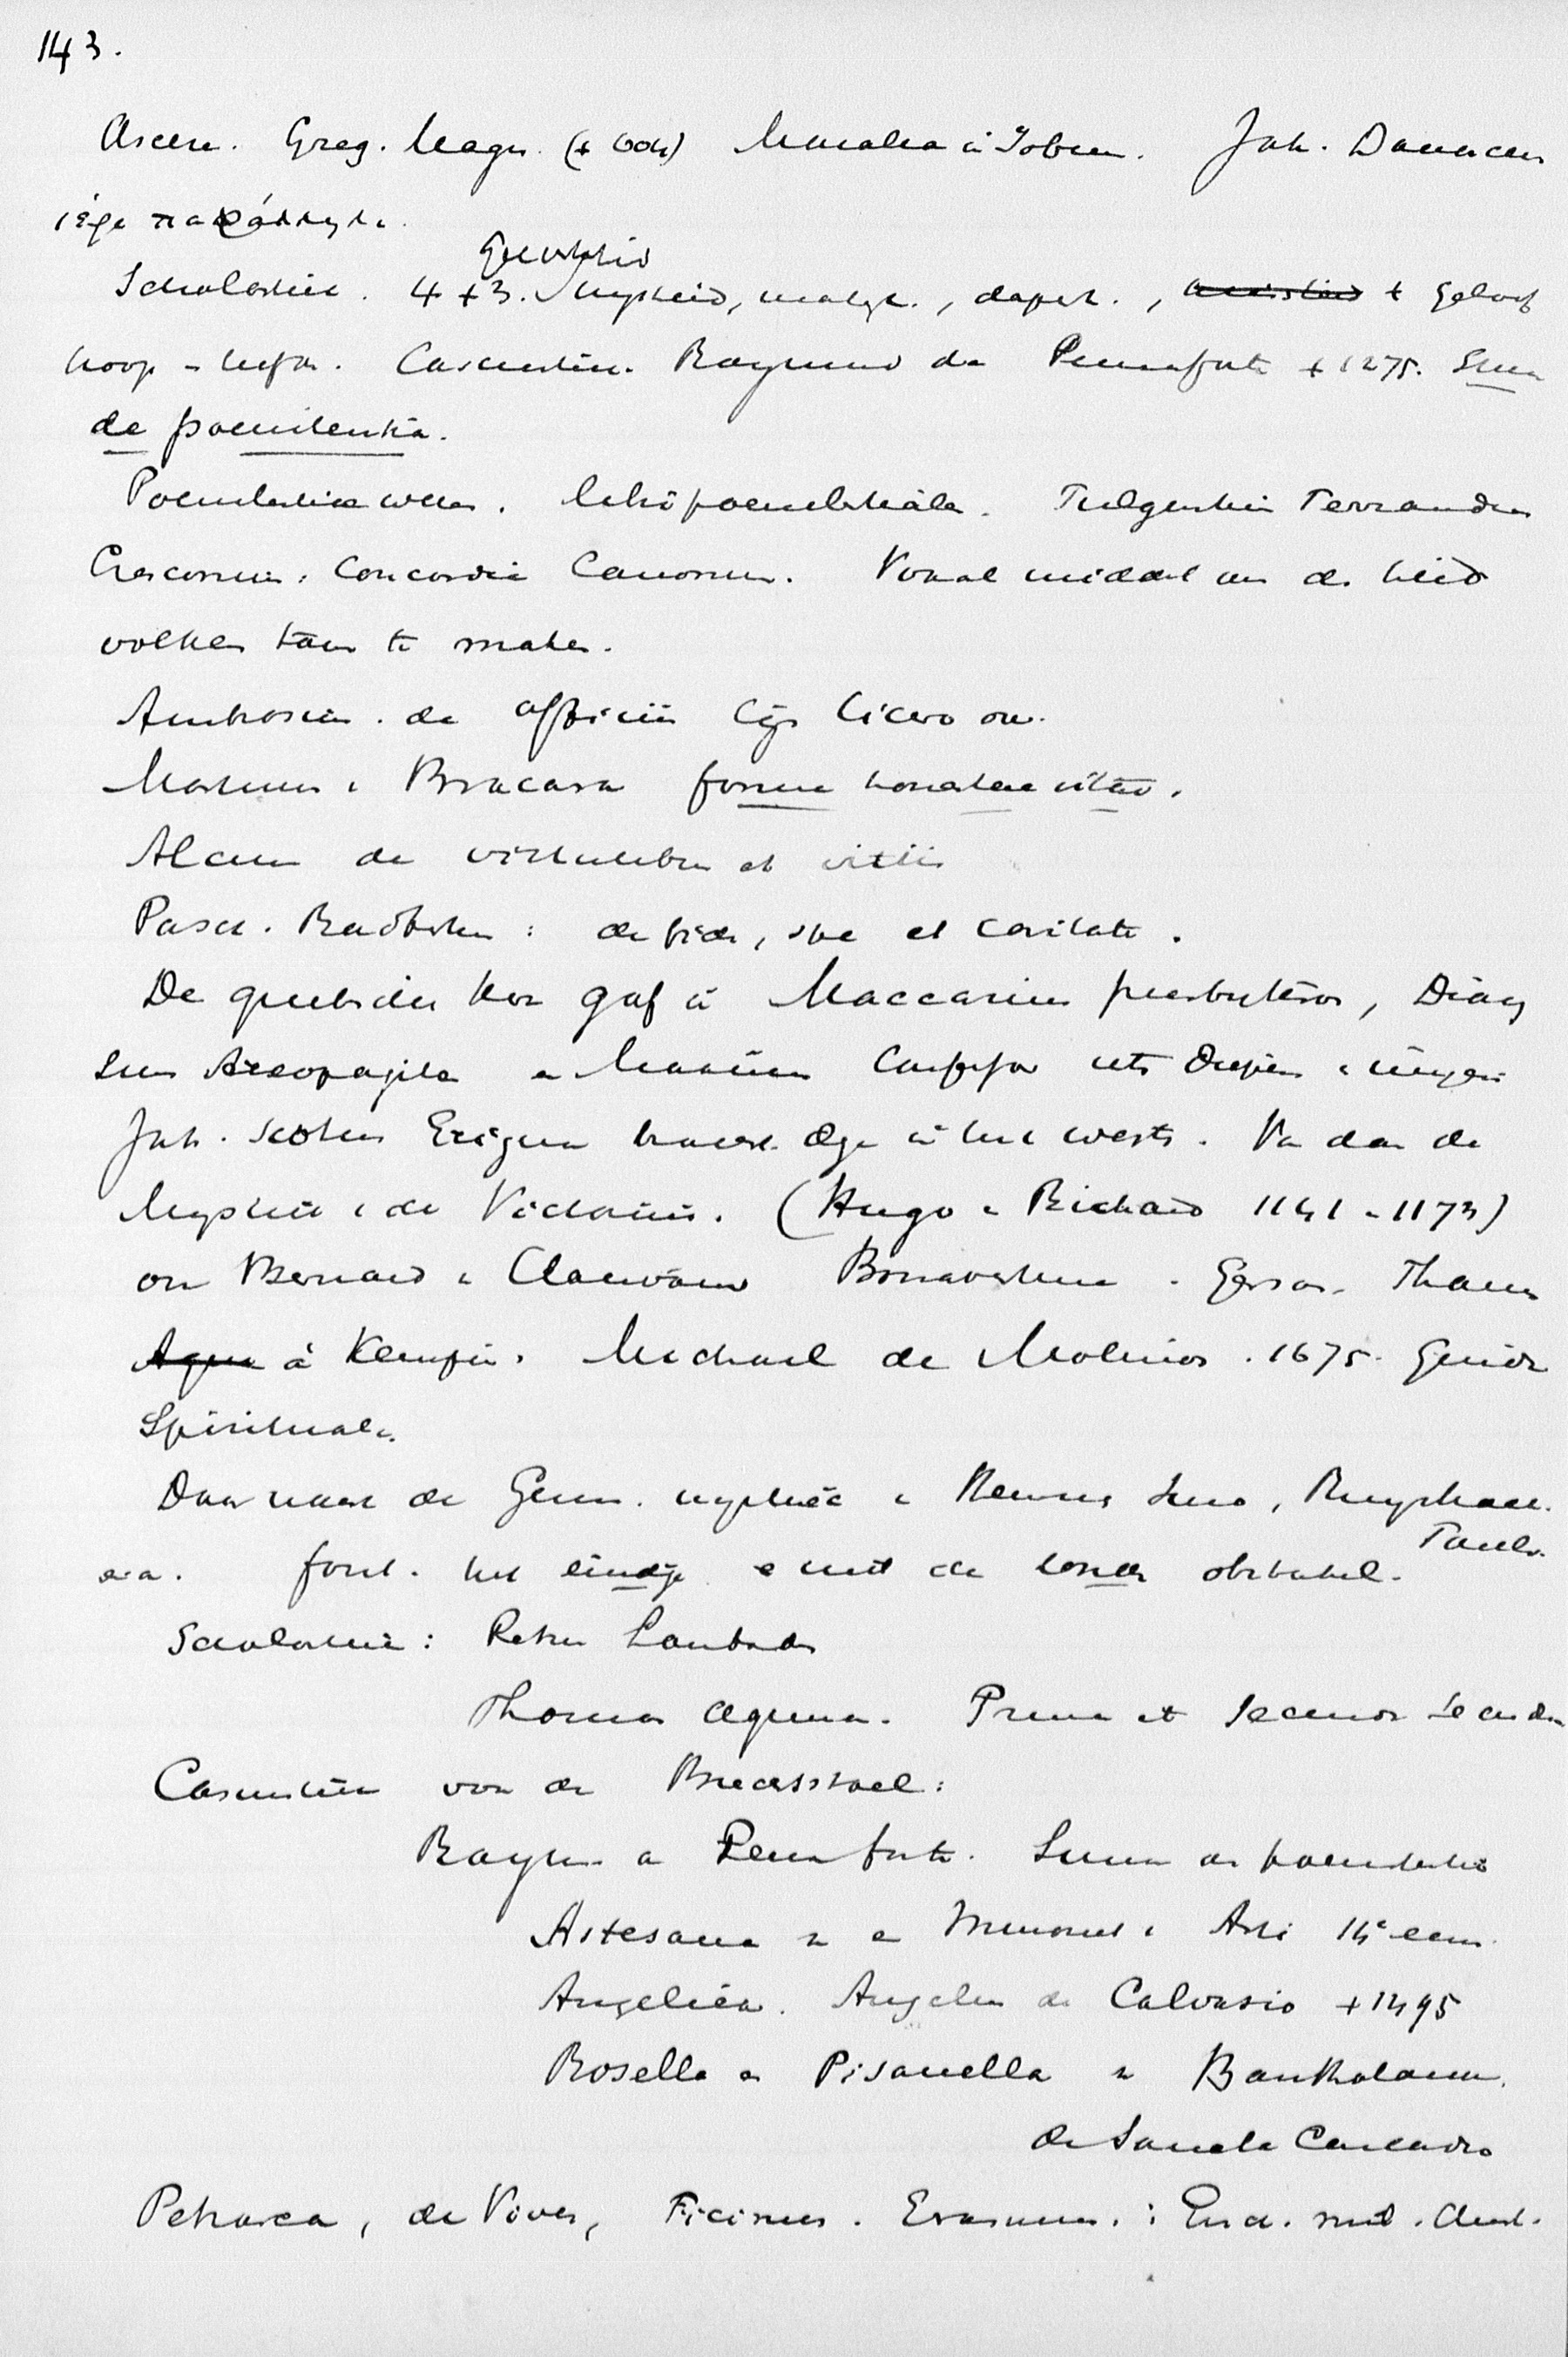 143.
Ascese. Greg. Magn. (+ 604) Moralia in Jobum. Joh. Damascen
ἱερα παράλληλα.
Gerechtid
Scholastiek. 4 + 3. Wijsheid, matigh., dapperh., + geloof
hoop en liefde. Casuistiek. Raymund de Pennaforte + 1275. Summa
de poenitentia.
Poenitentiale wetten. Libri poenitentiales. Fulgentius Ferrandus
Cresconius: Concordia Canonum. Vooral middel om de heid
volken tam te maken.
Ambrosius. de officiis bij Cicero om.
Martinus v Bracara formu honestae vitae.
Alcuin de virtutibus et vitiis
Pasch. Radbertus: de fide, spe et caritate.
De quietisten hier gaf in Maccarius presbyteros, Diony
sius Areopagita en Maximus Confessor
Joh. Scotus Erigena in het westen. Van daar de
Mystiek v de Victorinis. (Hugo en Richard 1141 - 1173)
en Bernard v Clairvaux Bonaventura. Gerson. Thomas
Aquin à Kempis. Michael de Molinos. 1675. Guida
Spirituale.
Daarnaast de Germ. mystiek v Henricus Suso, Ruysbroec.
Tauler.
e.a. fout. het eindige en niet de zonde obstakel.
Scholastiek: Petrus Lombardus
Thomas Aquin. Prima et secunda secundae
Casuistiek voor de Biechtstoel:
Raym. a Pennaforte. Summa de poenitentia
Astesana v e Minoriet v Asti 14e eeuw.
Angelica. Angelus de Calvasio + 1495
Rosella en Pisanella v Bartholom.
de Sancta Concordio
Petrarca, de Vives, Ficinus. Erasmus.: Ench. mil. Christ.